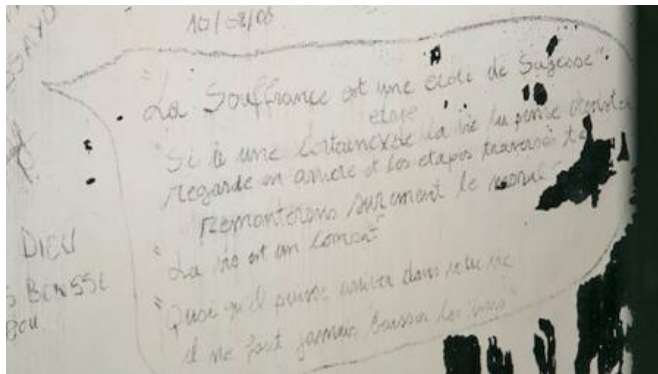 10/08/06
"La Souffrance est une ecole de Sagesse"
etape
"Si à une certaine de la vie tu pense
regarde en arriere et les etapes traversés te
remonterons surement le moral
"La vie est un combat"
"Quoi qu'il puisse arriver dans votre vie
il ne faut jamais baisser les bras"
DIEU